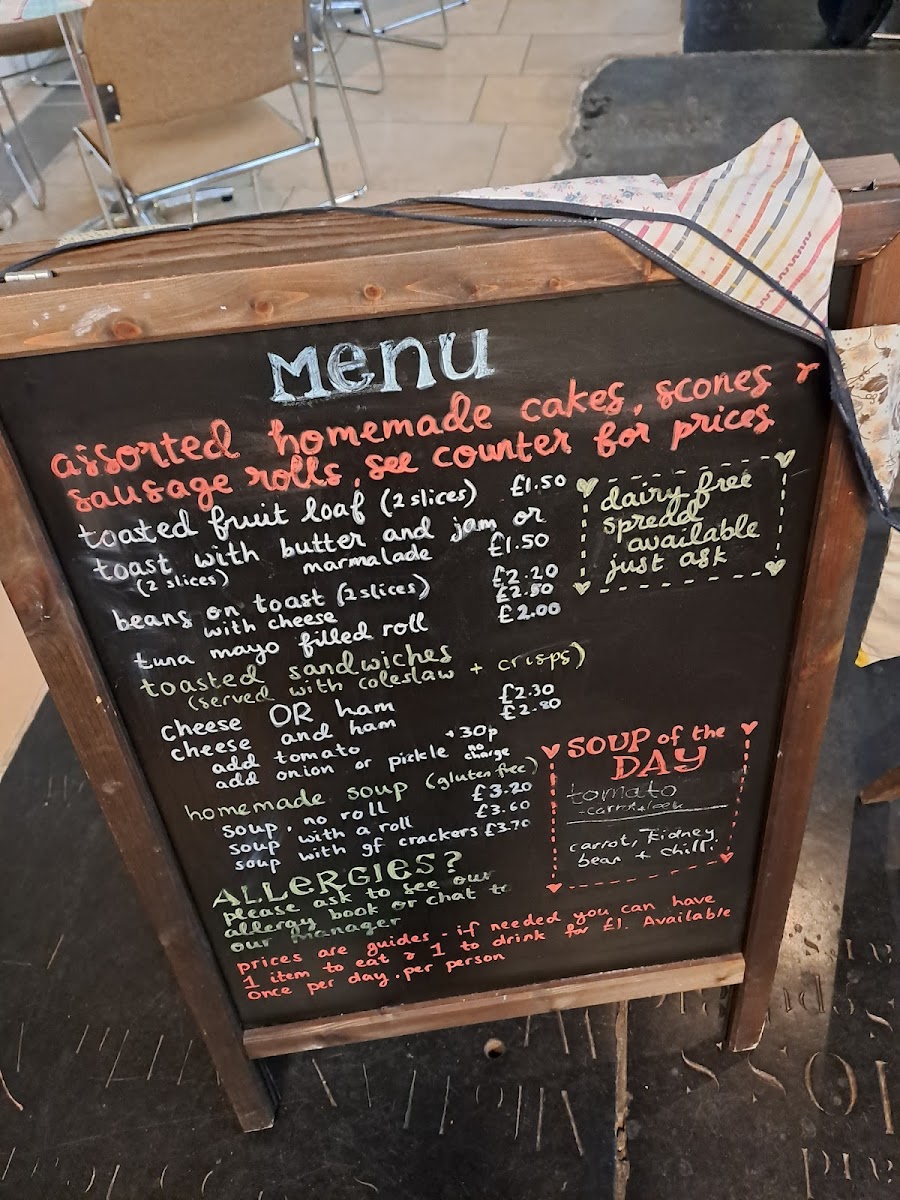 Menu
assorted homemade cakes, scones &
sausage rolls, see counter for prices
toated fruit loaf (2 slices) £1.50
toast with butter and jam or
(2 slices) marmalade £1.50
beans on toast (2 slices) £2.20
with cheese £2.50
tuna mayo filled roll £2.00
dairy free
spread
available
just ask
toasted sandwiches
(served with coleslaw + crisps)
cheese OR ham £2.30
cheese and ham £2.80
add tomato +30p
add onion or pickle no charge
homemade soup (gluten free)
soup, no roll £3.20
soup with a roll £3.60
soup with gf crackers £3.70
SOUP of the
DAY
tomato
carrot, kidney
bean + chilli
ALLERGIES?
please ask to see our
allergy book or chat to
our manager
prices are guides - if needed you can have
1 item to eat & 1 to drink for £1. Available
once per day. per person